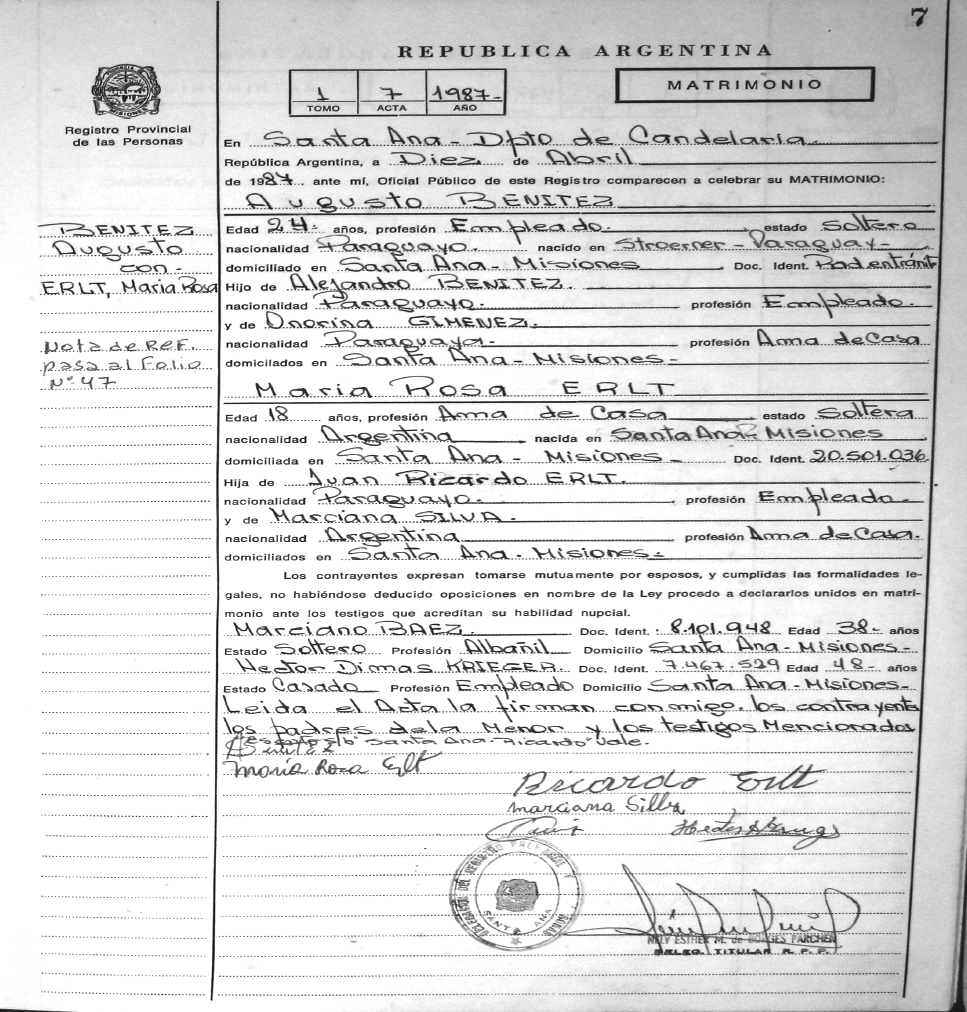 7
REPUBLICA ARGENTINA
1 7 1987-
TOMO ACTA AÑO
MATRIMONIO
MISIONES
Registro Provincial
de las Personas
En Santa Ana - Dpto de Candelaria.
República Argentina, a Diez de Abril
de 1987 ante mí, Oficial Público de este Registro comparecen a celebrar su MATRIMONIO:
Augusto BENITEZ
BENITEZ
Augusto
con-
ERLT, Maria Rosa
Nota de REF.
pasa al Folio
N° 47
Edad 24- años, profesión Empleado. estado Soltero
nacionalidad Paraguayo. nacido en Stroerner - Paraguay-
domiciliado en Santa Ana - Misiones Doc. Ident. Rad entránit
Hijo de Alejandro BENITEZ.
nacionalidad Paraguayo. profesión Empleado.
y de Onorina GIMENEZ.
nacionalidad Paraguaya. profesión Ama de Casa
domicilados en Santa Ana - Misiones -
Maria Rosa ERLT
Edad 18 años, profesión Ama de Casa estado Soltera
nacionalidad Argentina nacida en Santa Ana - Misiones
domiciliada en Santa Ana - Misiones - Doc. Ident. 20.501.036.
Hija de Juan Ricardo ERLT.
nacionalidad Paraguayo. profesión Empleado -
y de Marciana SILVA.
nacionalidad Argentina profesión Ama de Casa.
domiciliados en Santa Ana - Misiones -
Los contrayentes expresan tomarse mutuamente por esposos, y cumplidas las formalidades le-
gales, no habiéndose deducido oposiciones en nombre de la Ley procedo a declararlos unidos en matri-
monio ante los testigos que acreditan su habilidad nupcial.
Marciano BAEZ. Doc. Ident. : 8.101.948 Edad 38- años
Estado Soltero Profesión Albañil Domicilio Santa Ana - Misiones -
Hector Dimas KRIEGER. Doc. Ident. 7.467.529 Edad 48- años
Estado Casado Profesión Empleado Domicilio Santa Ana - Misiones -
Leida el Acta la firman conmigo, los contrayente
los padres de la Menor y los testigos Mencionados
Santa Ana - Ricardo Vale.
Maria Rosa Erlt
Ricardo Erlt
Marciana Silva
SANTA ANA
NELY ESTHER M. de BORGES PARCHEN
DELEG. TITULAR R. P. P.